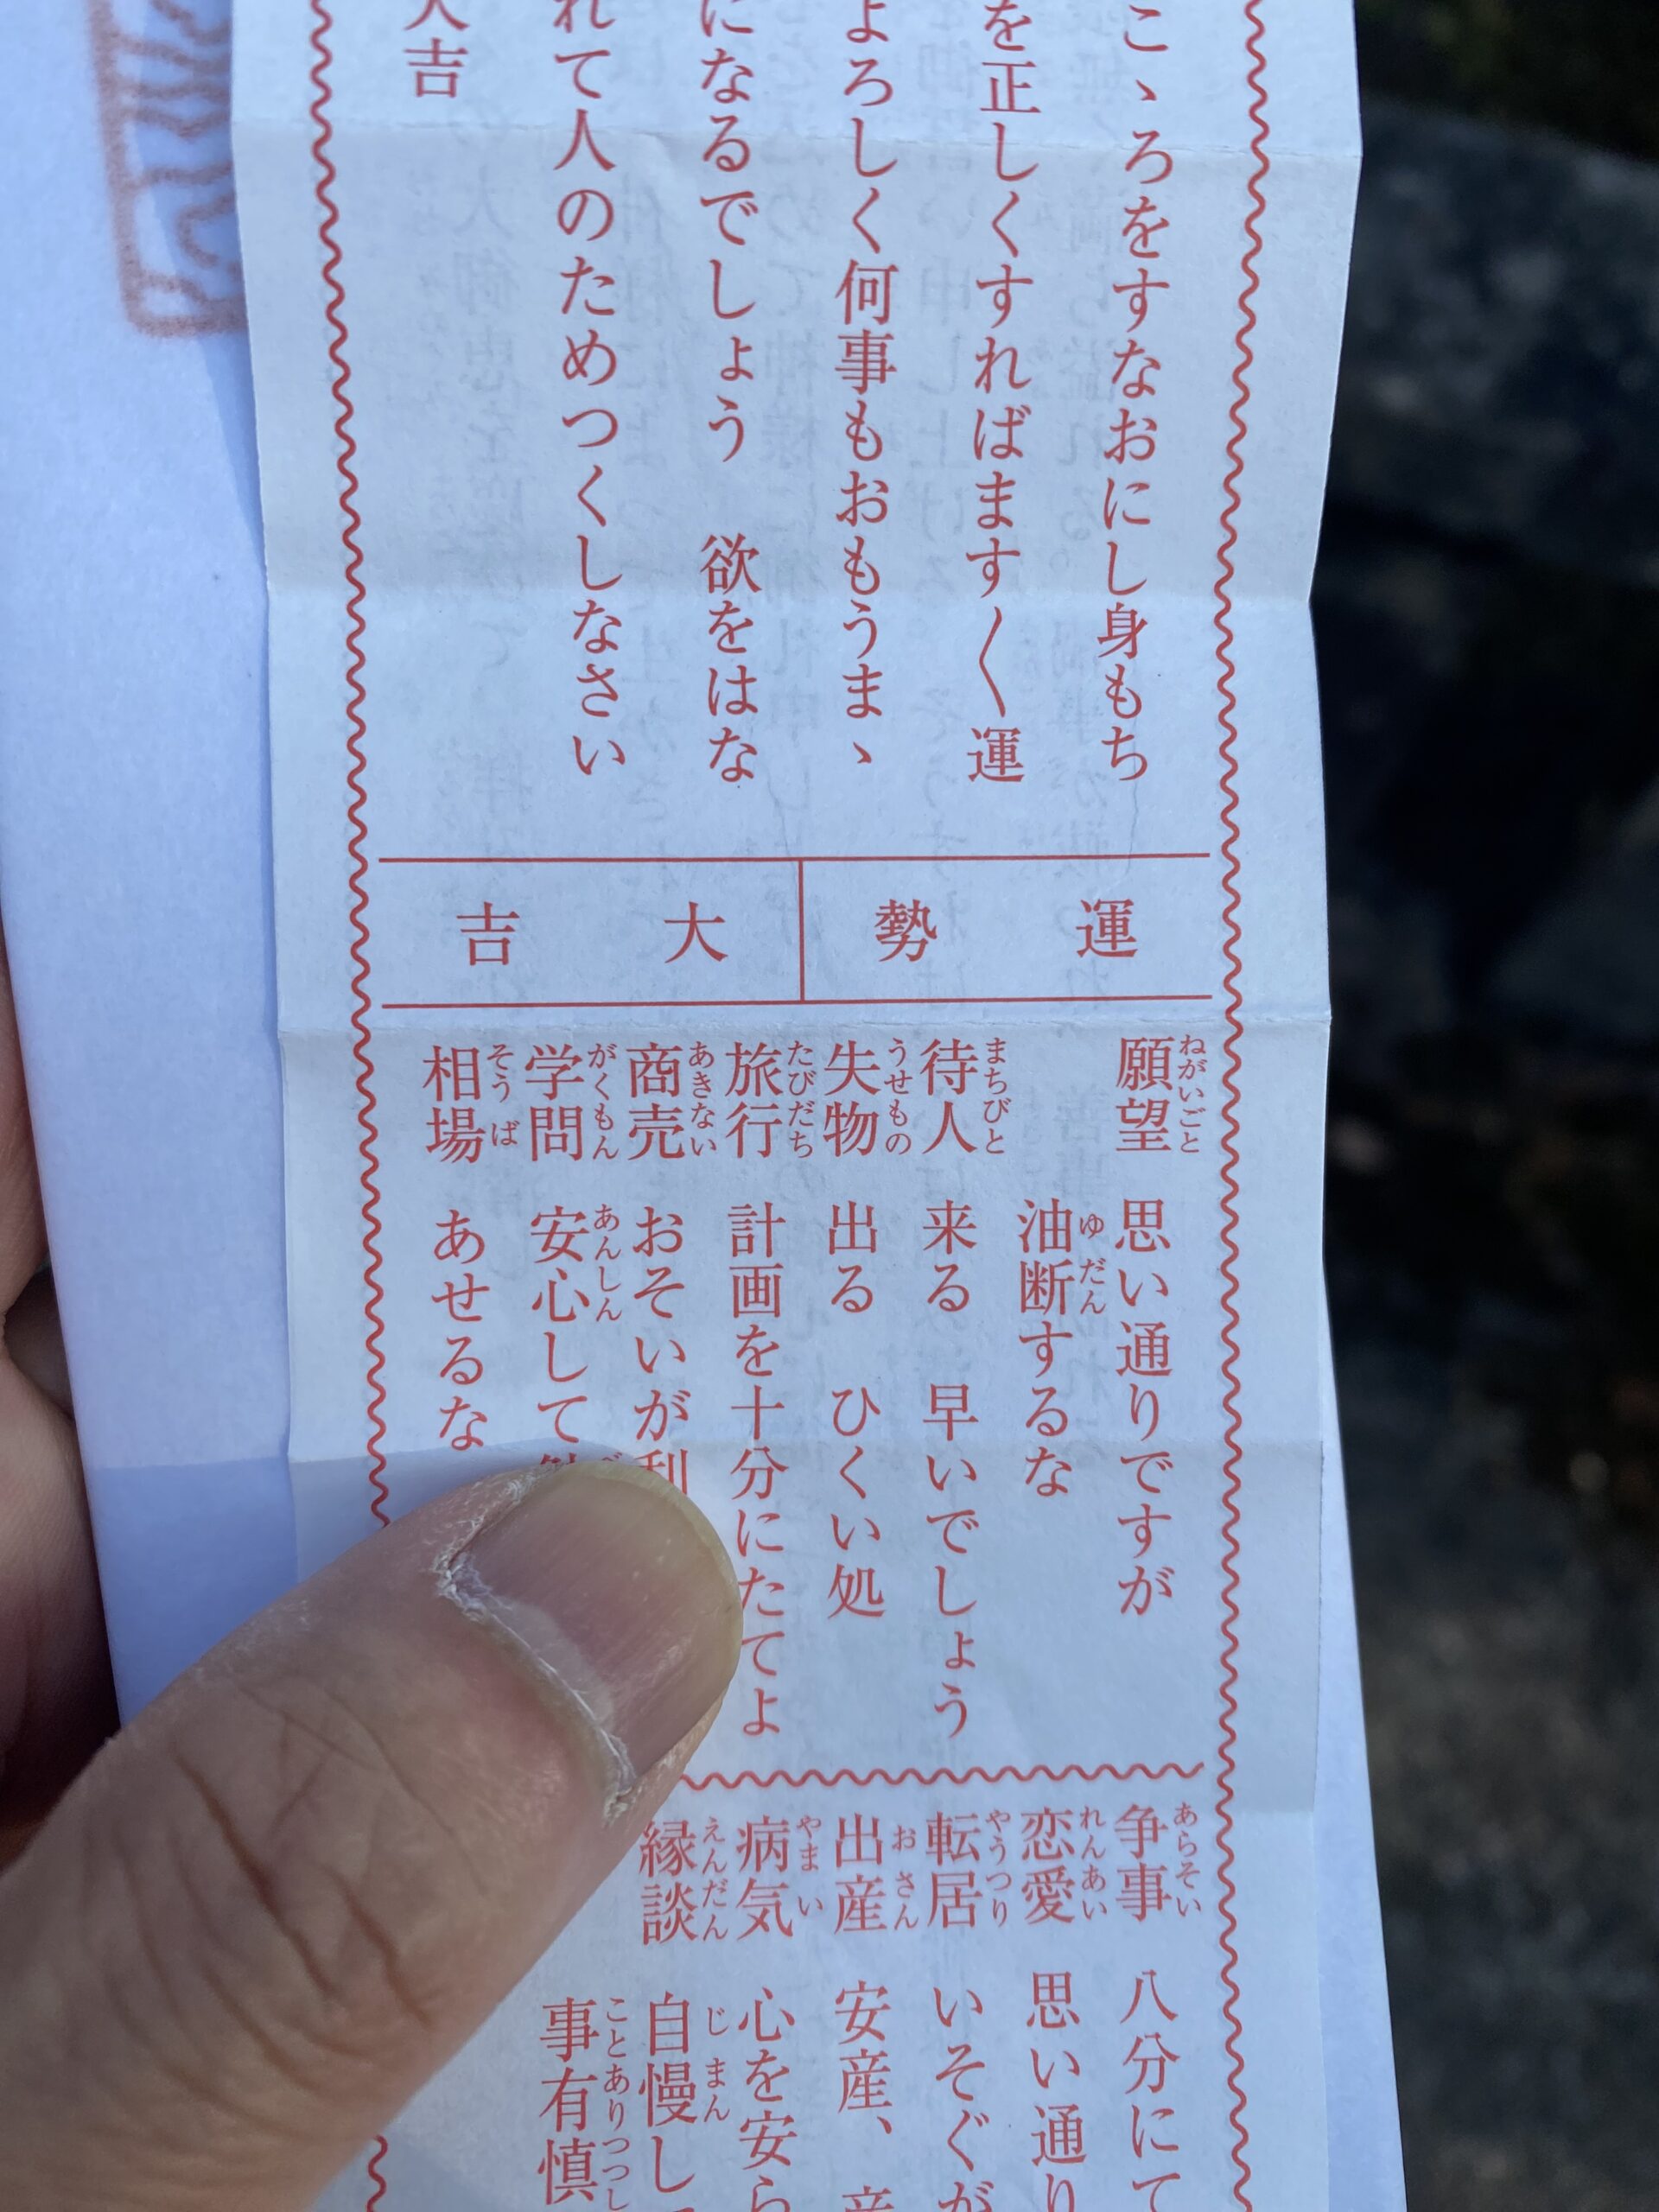 こゝろをすなおにし身もち
を正しくすればます〳〵運
よろしく何事もおもうまゝ
になるでしょう　欲をはな
れて人のためつくしなさい
大吉
運勢 大吉
願望 ねがいごと 思い通りですが
油断するな ゆだん
待人 まちびと 来る 早いでしょう
失物 うせもの 出る ひくい処
旅行 たびだち 計画を十分にたてよ
商売 あきない おそいが利
学問 がくもん 安心して あんしん
相場 そうば あせるな
争事 あらそい 八分にて
恋愛 れんあい 思い通り
転居 やうつり いそぐが
出産 おさん 安産、産
病気 やまい 心を安ら
縁談 えんだん 自慢して じまん
事有慎 ことありつつし